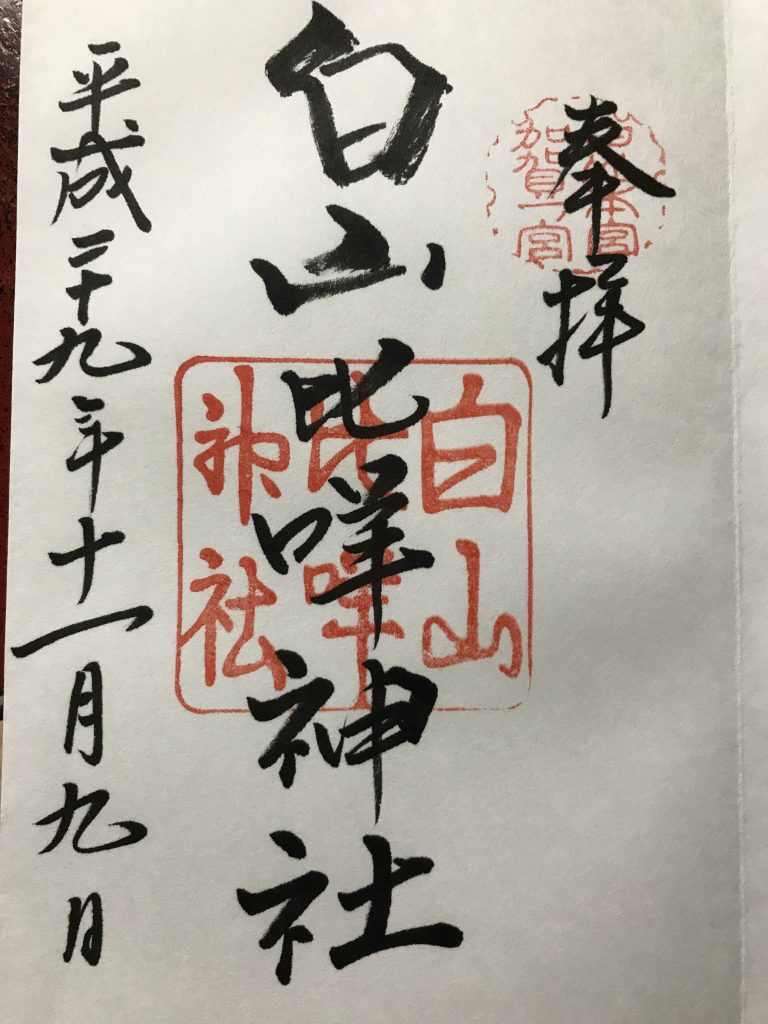 奉拝
白山比咩神社
平成二十九年十一月九日
加賀一宮
白山
比咩
神社